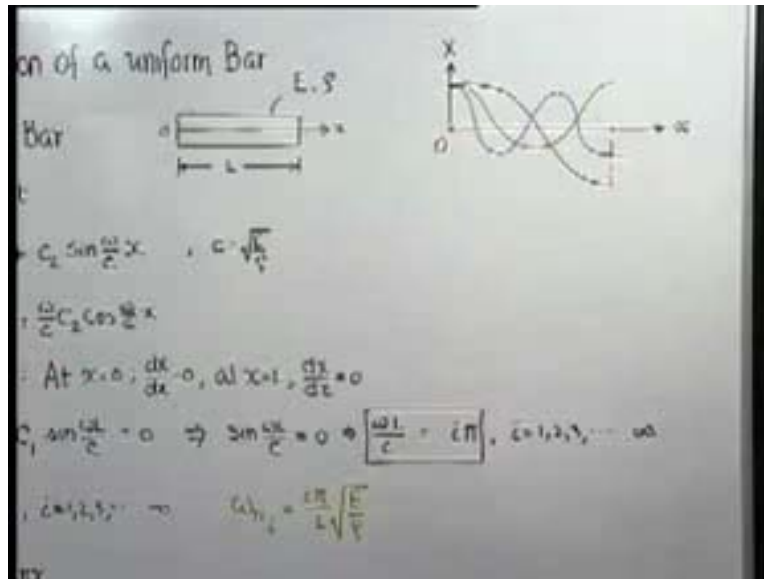 on of a uniform Bar
E, ρ
Bar
O
x
L
X
O
x
C₂ sin ω/c x , c = √E/ρ
ω/c C₂ cos ω/c x
At x=0, dX/dx=0, at x=L, dX/dx=0
C₁ sin ωL/c = 0 ⇒ sin ωL/c = 0 ⇒ ωL/c = iπ, i=1,2,3,... ∞
, i=1,2,3,... ∞ ωₙᵢ = iπ/L √E/ρ